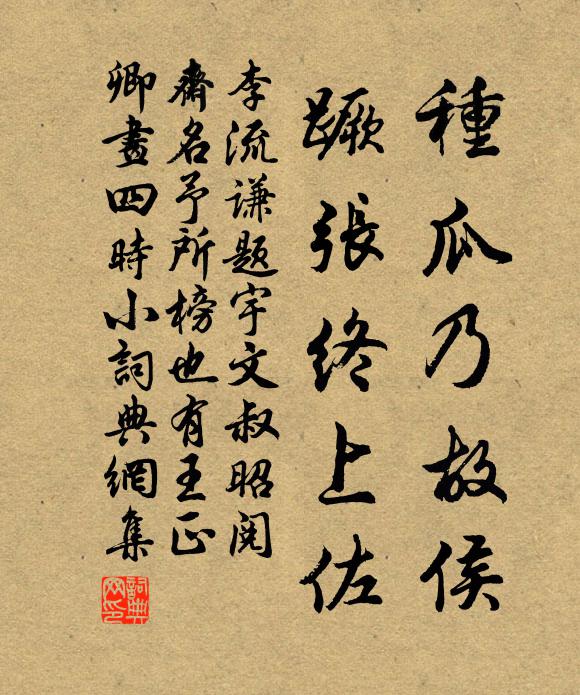 種瓜乃故侯
蹶張終上佐
李流谦题宇文叔昭阅
齋名予所榜也有王正
卿畫四時小詞典網集
詞典网印